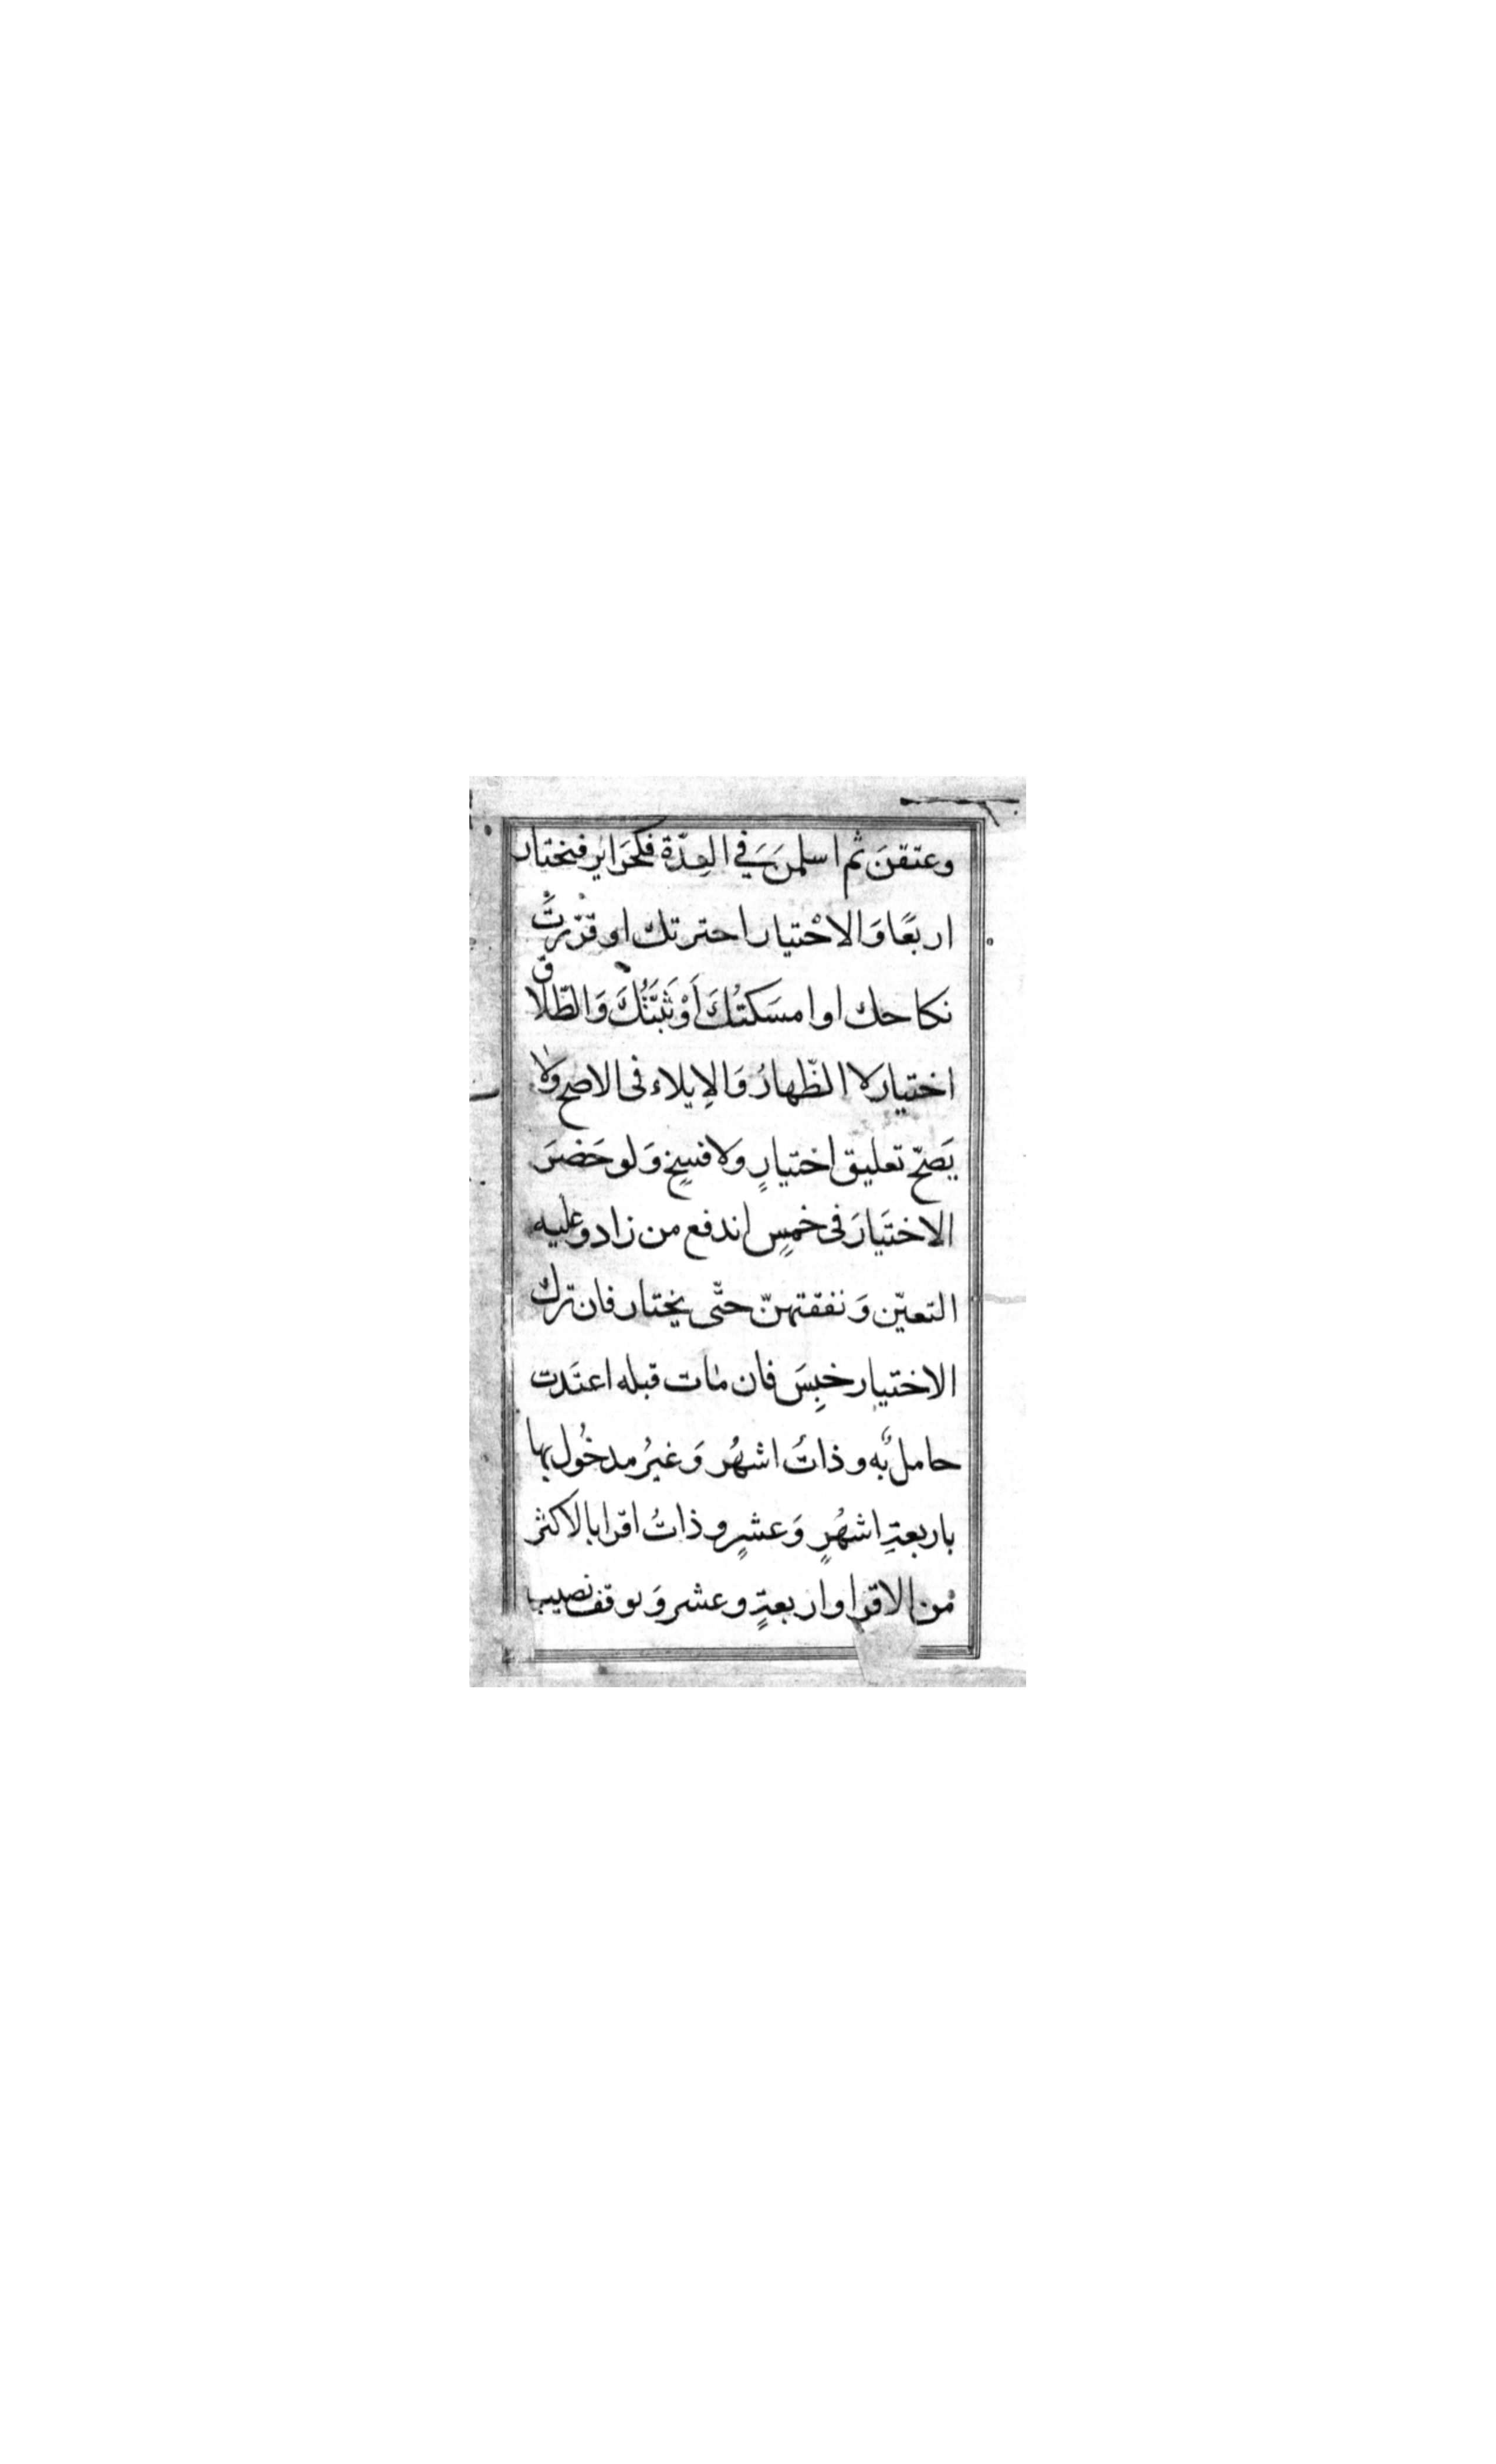 وعتقنَ ثم اسلمنَ في العِدّة فكحَرَاير فيختار
اربعًا وَالاخْتيار احترتك او قرّرتُ
نكاحك او امسَكتُكَ اَوْ ثَبَّتُّكَ وَالطّلاق
اختيار لا الظّهارُ وَالاِيلاء فى الاصح ولا
يَصَحّ تعليق اخْتيارٍ ولا فسخٍ وَلو حَضَرَ
الاختَيارَ فى خمسٍ اندفع من زاد وعليه
التعيّن وَنفقتهنّ حتّى يختار فان ترك
الاختيار خبِسَ فان مات قبله اعتدت
حاملٌ به وذاتُ اشهُر وَغيرُ مدخُول بها
باربعةِ اشهُرٍ وَعشرٍ وذاتُ اقرا بالاكثر
من الاقرا واربعةٍ وعشر وَيوقف نصيب